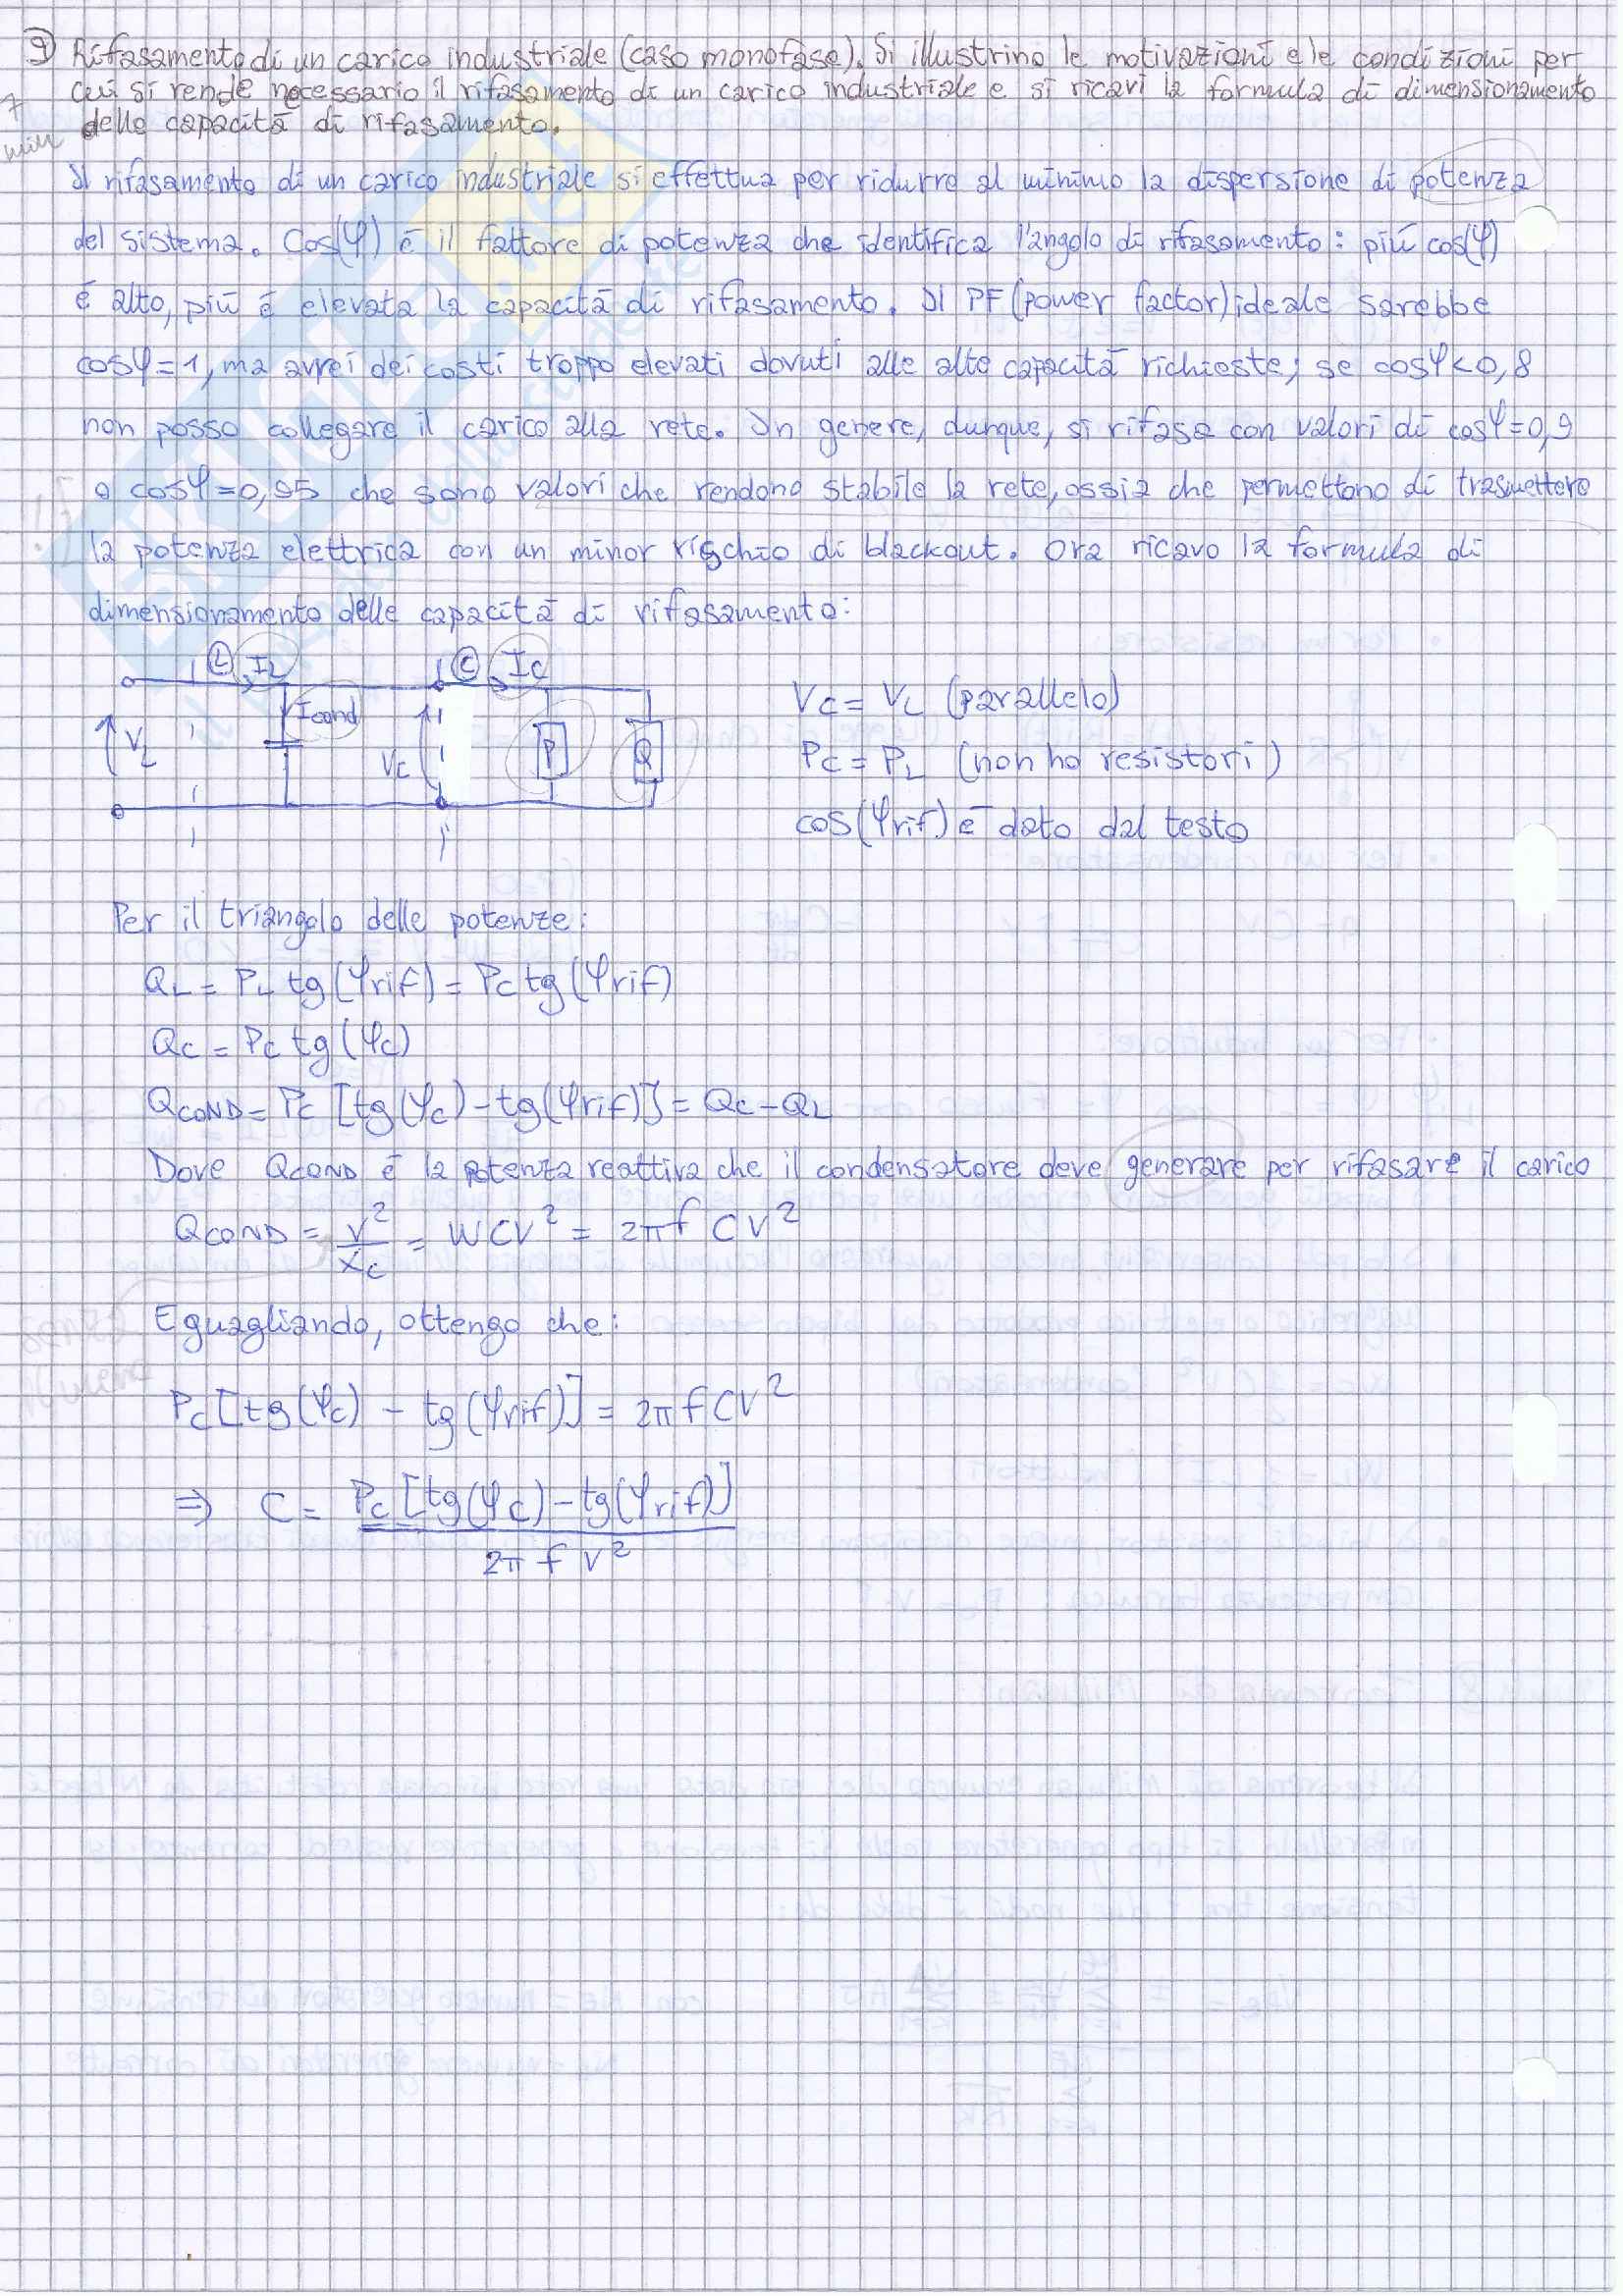 9) Rifasamento di un carico industriale (caso monofase). Si illustrino le motivazioni e le condizioni per
cui si rende necessario il rifasamento di un carico industriale e si ricavi la formula di dimensionamento
delle capacità di rifasamento.
7
min
Il rifasamento di un carico industriale si effettua per ridurre al minimo la dispersione di potenza
del sistema. Cos(φ) è il fattore di potenza che identifica l'angolo di rifasamento: più cos(φ)
è alto, più è elevata la capacità di rifasamento. Il PF (power factor) ideale sarebbe
cosφ=1, ma avrei dei costi troppo elevati dovuti alle alte capacità richieste; se cosφ<0,8
non posso collegare il carico alla rete. In genere, dunque, si rifasa con valori di cosφ=0,9
o cosφ=0,95 che sono valori che rendono stabile la rete, ossia che permettono di trasmettere
la potenza elettrica con un minor rischio di blackout. Ora ricavo la formula di
dimensionamento delle capacità di rifasamento:
L IL C IC
Icond
VL VC P Q
VC = VL (parallelo)
PC = PL (non ho resistori)
cos(φrif) è dato dal testo
Per il triangolo delle potenze:
QL = PL tg(φrif) = PC tg(φrif)
QC = PC tg(φC)
QCOND = PC [tg(φC) - tg(φrif)] = QC - QL
Dove QCOND è la potenza reattiva che il condensatore deve generare per rifasare il carico
QCOND = V²/XC = WCV² = 2πf CV²
Eguagliando, ottengo che:
PC [tg(φC) - tg(φrif)] = 2πf CV²
⇒ C = PC [tg(φC) - tg(φrif)]
2π f V²